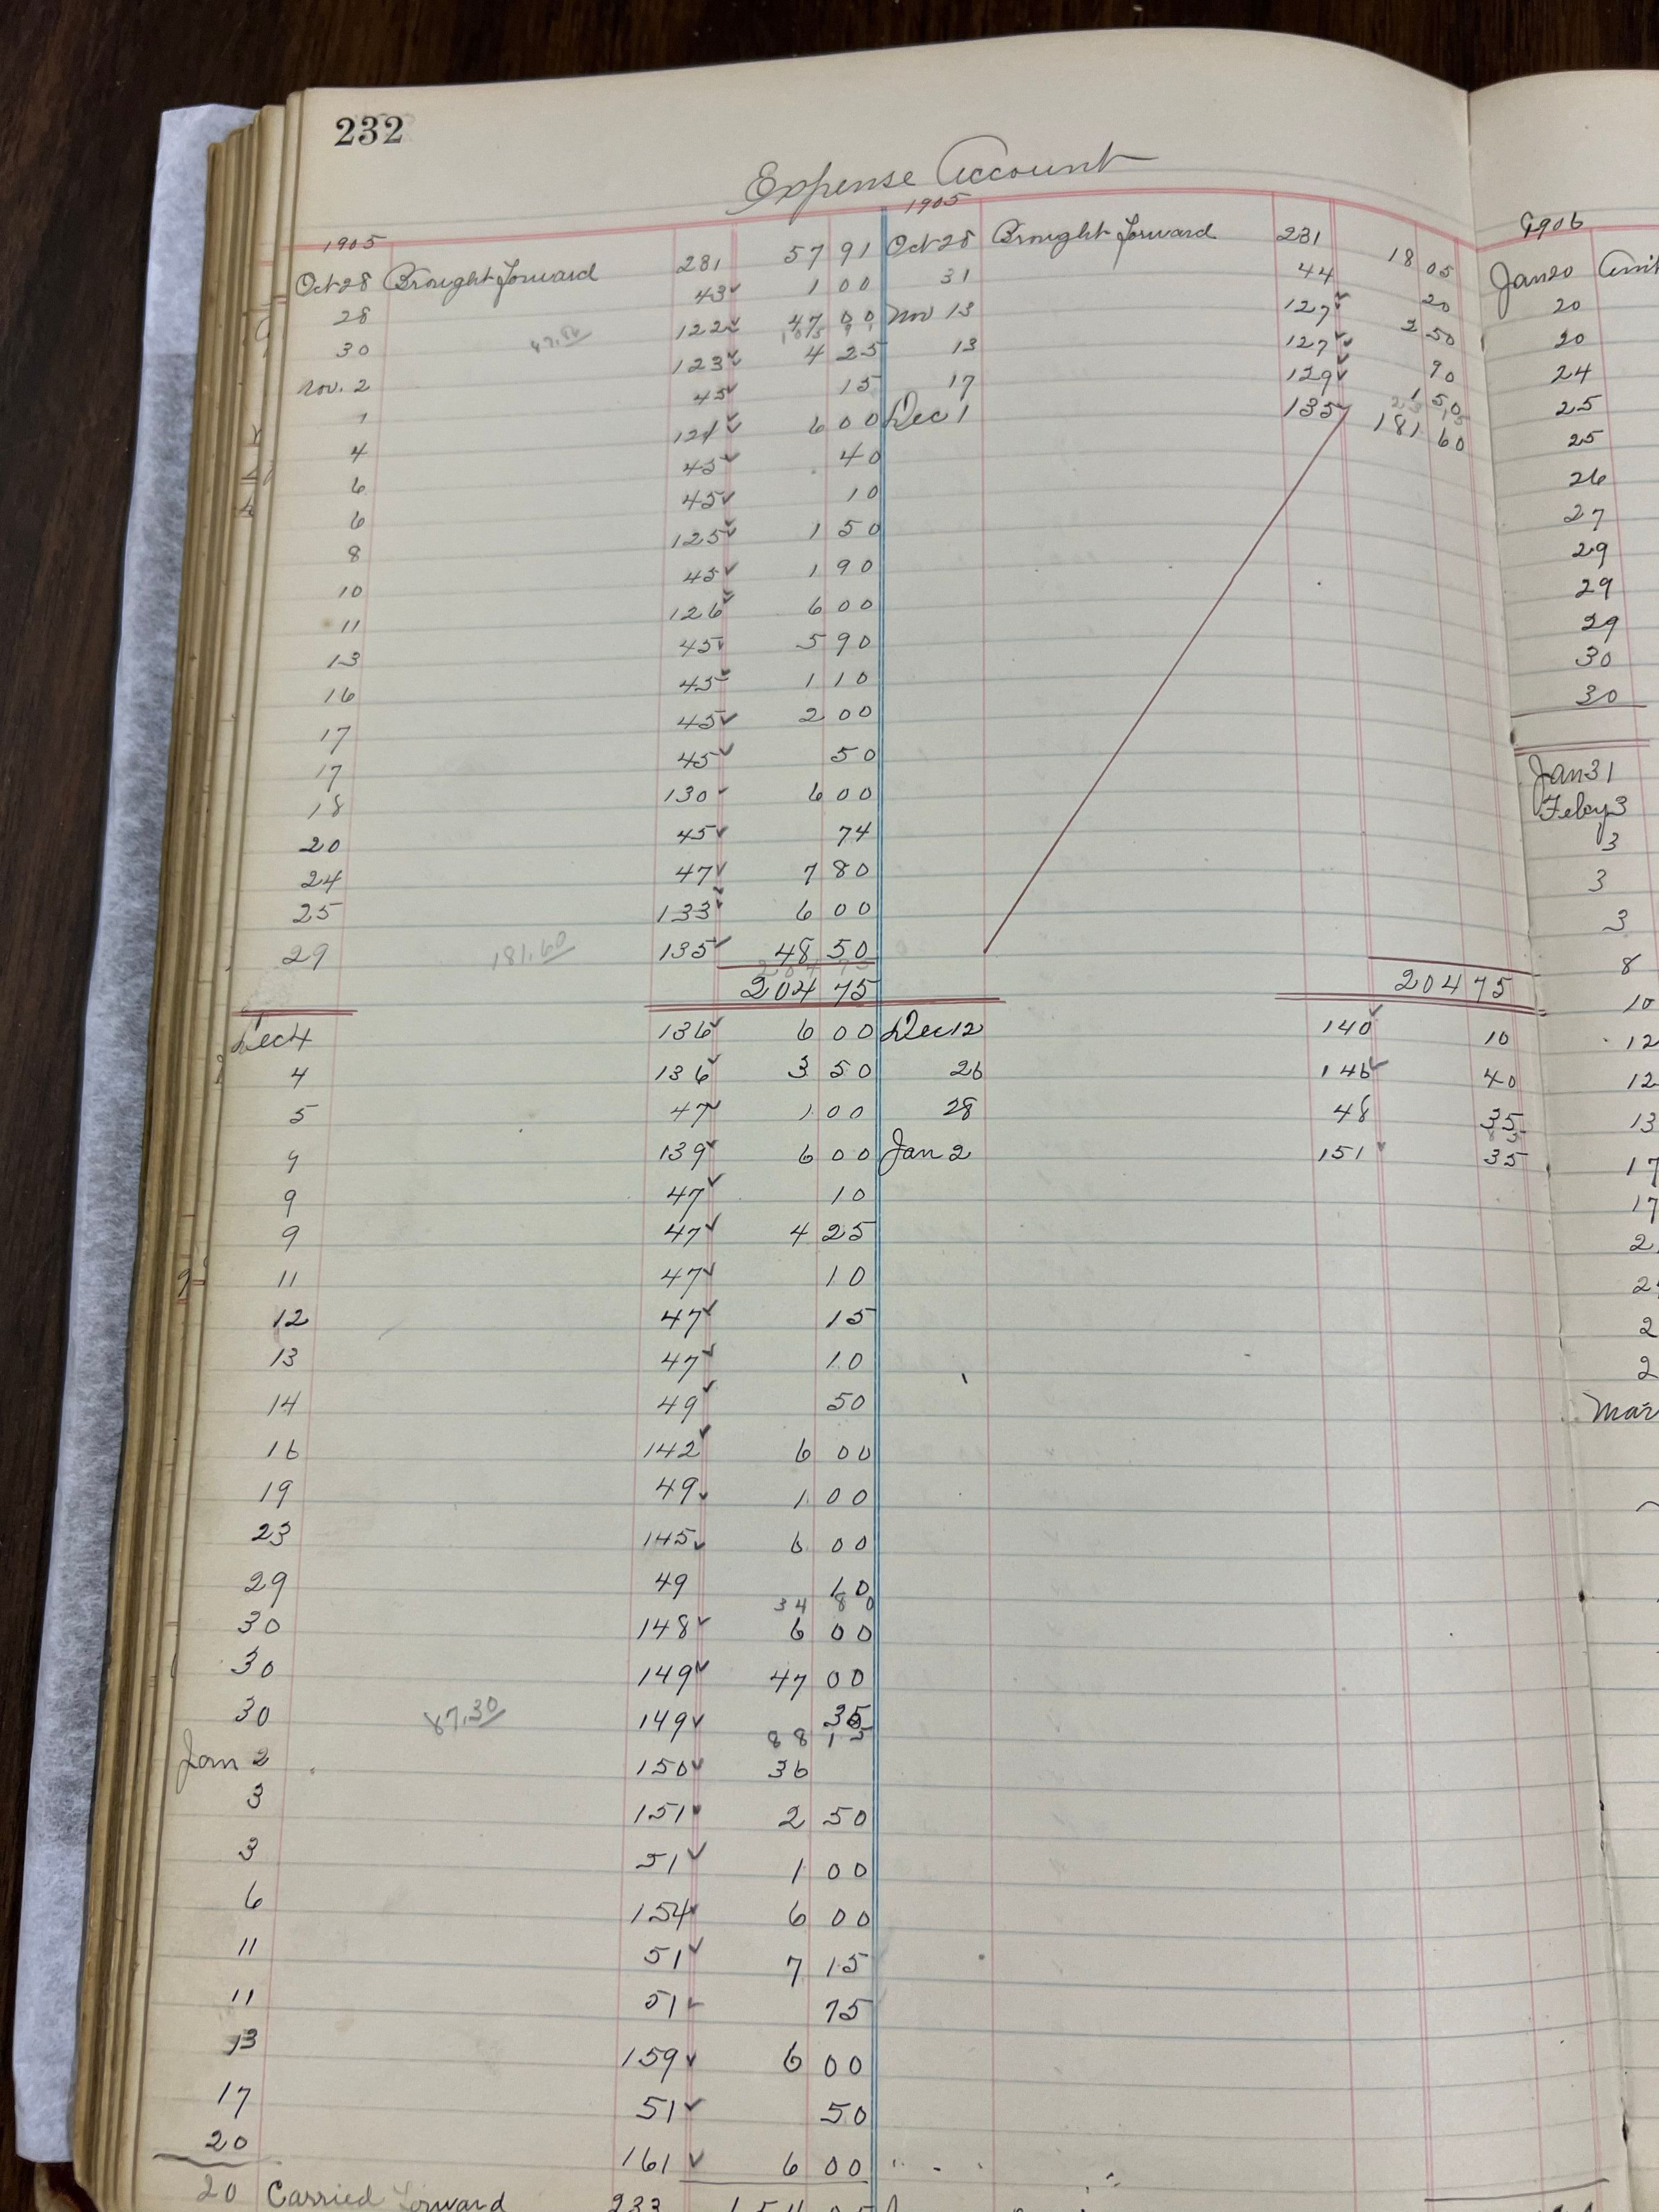 232
Expense Account
1905 1905
Oct 28 Brought forward 231 57 91 Oct 28 Brought forward 231 18 05
28 43 1 00 31 44 20
30 122 47 00 Nov 13 127 2 50
Nov. 2 123 4 25 13 127 90
45 15 17 129 1 50
4 124 6 00 Dec 1 135 181 60
6 45 40
6 45 10
8 125 1 50
10 45 1 90
11 126 6 00
13 45 5 90
16 45 1 10
17 45 2 00
17 45 50
18 130 6 00
20 45 74
24 47 7 80
25 133 6 00
29 181.60 135 48 50
204 75 204 75
Dec 4 136 6 00 Dec 12 140 10
4 136 3 50 26 146 40
5 47 1 00 28 48 35
9 139 6 00 Jan 2 151 35
9 47 10
9 47 4 25
11 47 10
12 47 15
13 47 10
14 49 50
16 142 6 00
19 49 1 00
23 145 6 00
29 49 10
34 80
30 148 6 00
30 149 47 00
30 87.30 149 35
88 15
Jan 2 150 36
3 151 2 50
3 51 1 00
6 154 6 00
11 51 7 15
11 51 75
13 159 6 00
17 51 50
20 161 6 00
20 Carried forward 233
1906
Jan 20
20
20
24
25
25
26
27
29
29
29
30
30
Jan 31
Feby 3
3
3
3
8
10
12
12
13
17
17